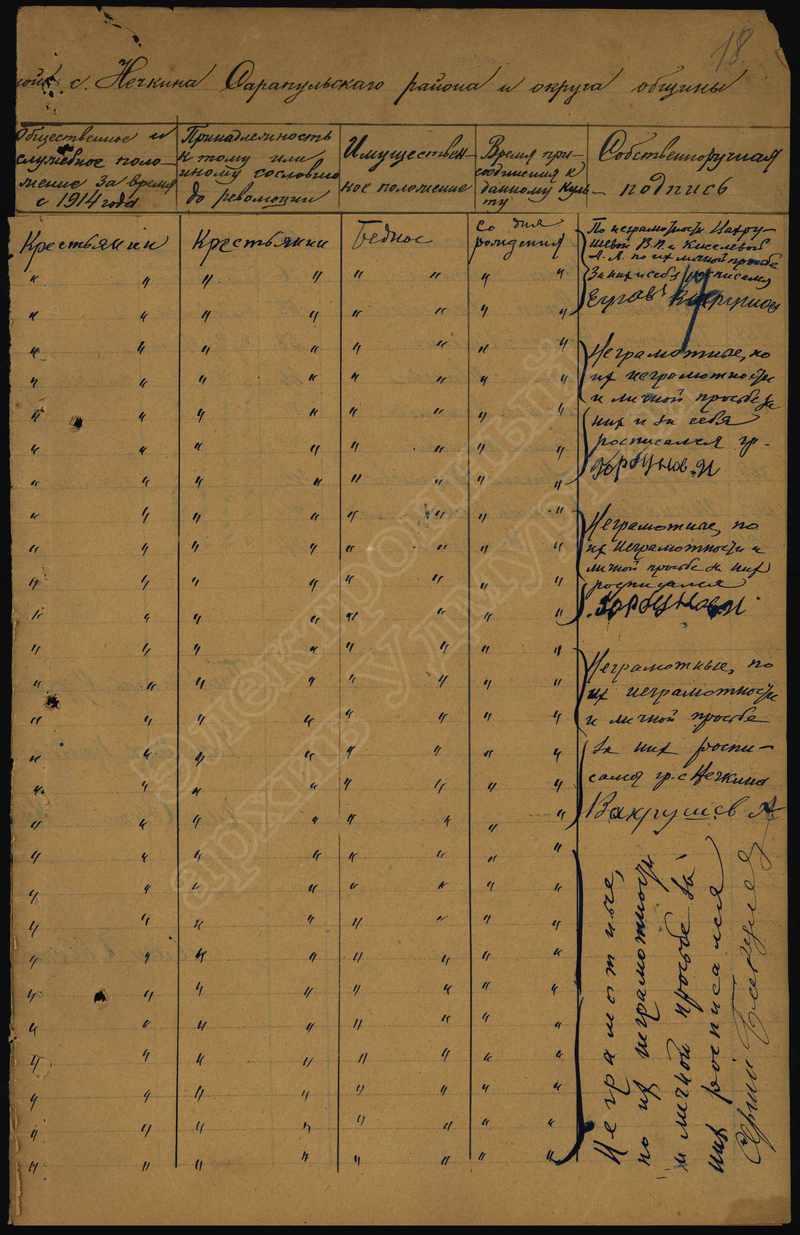 18.
с. Нечкина Сарапульскаго района и округа общины
Общественное и
служебное поло-
жение за время
с 1914 года
Принадлежность
к тому или
иному сословию
до революции
Имуществен-
ное положение
Время при-
соединения к
данному куль-
ту
Собственноручная
подпись
Крестьянин Крестьянин Бедное со дня
рождения
По неграмотности Вахру-
шевой В.П. и Киселевой
А.А. по их личной просьбе
За них и себя росписался
Неграмотные, по
их неграмотности
и личной просьбе за
них и за себя
росписался гр.
Горбунов.И
Неграмотные, по
их неграмотности и
личной просьбе за них
росписался
Горбунов И.
Неграмотные, по
их неграмотности
и личной просьбе
за них роспи-
сался гр. с Нечкино
Вахрушев А
Неграмотные,
по их неграмотности
и личной просьбе за
них росписался
электронный
архив Удмуртии